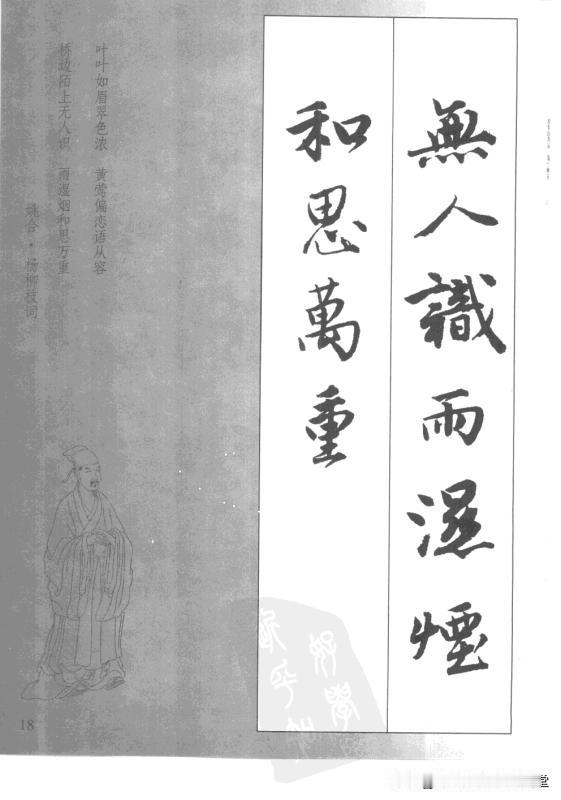 無人識雨濕煙
和思萬重
叶叶如眉翠色浓 黄莺偏恋语从容
桥边陌上无人识 雨湿烟和思万重
姚合·杨柳枝词
18
好學
堂